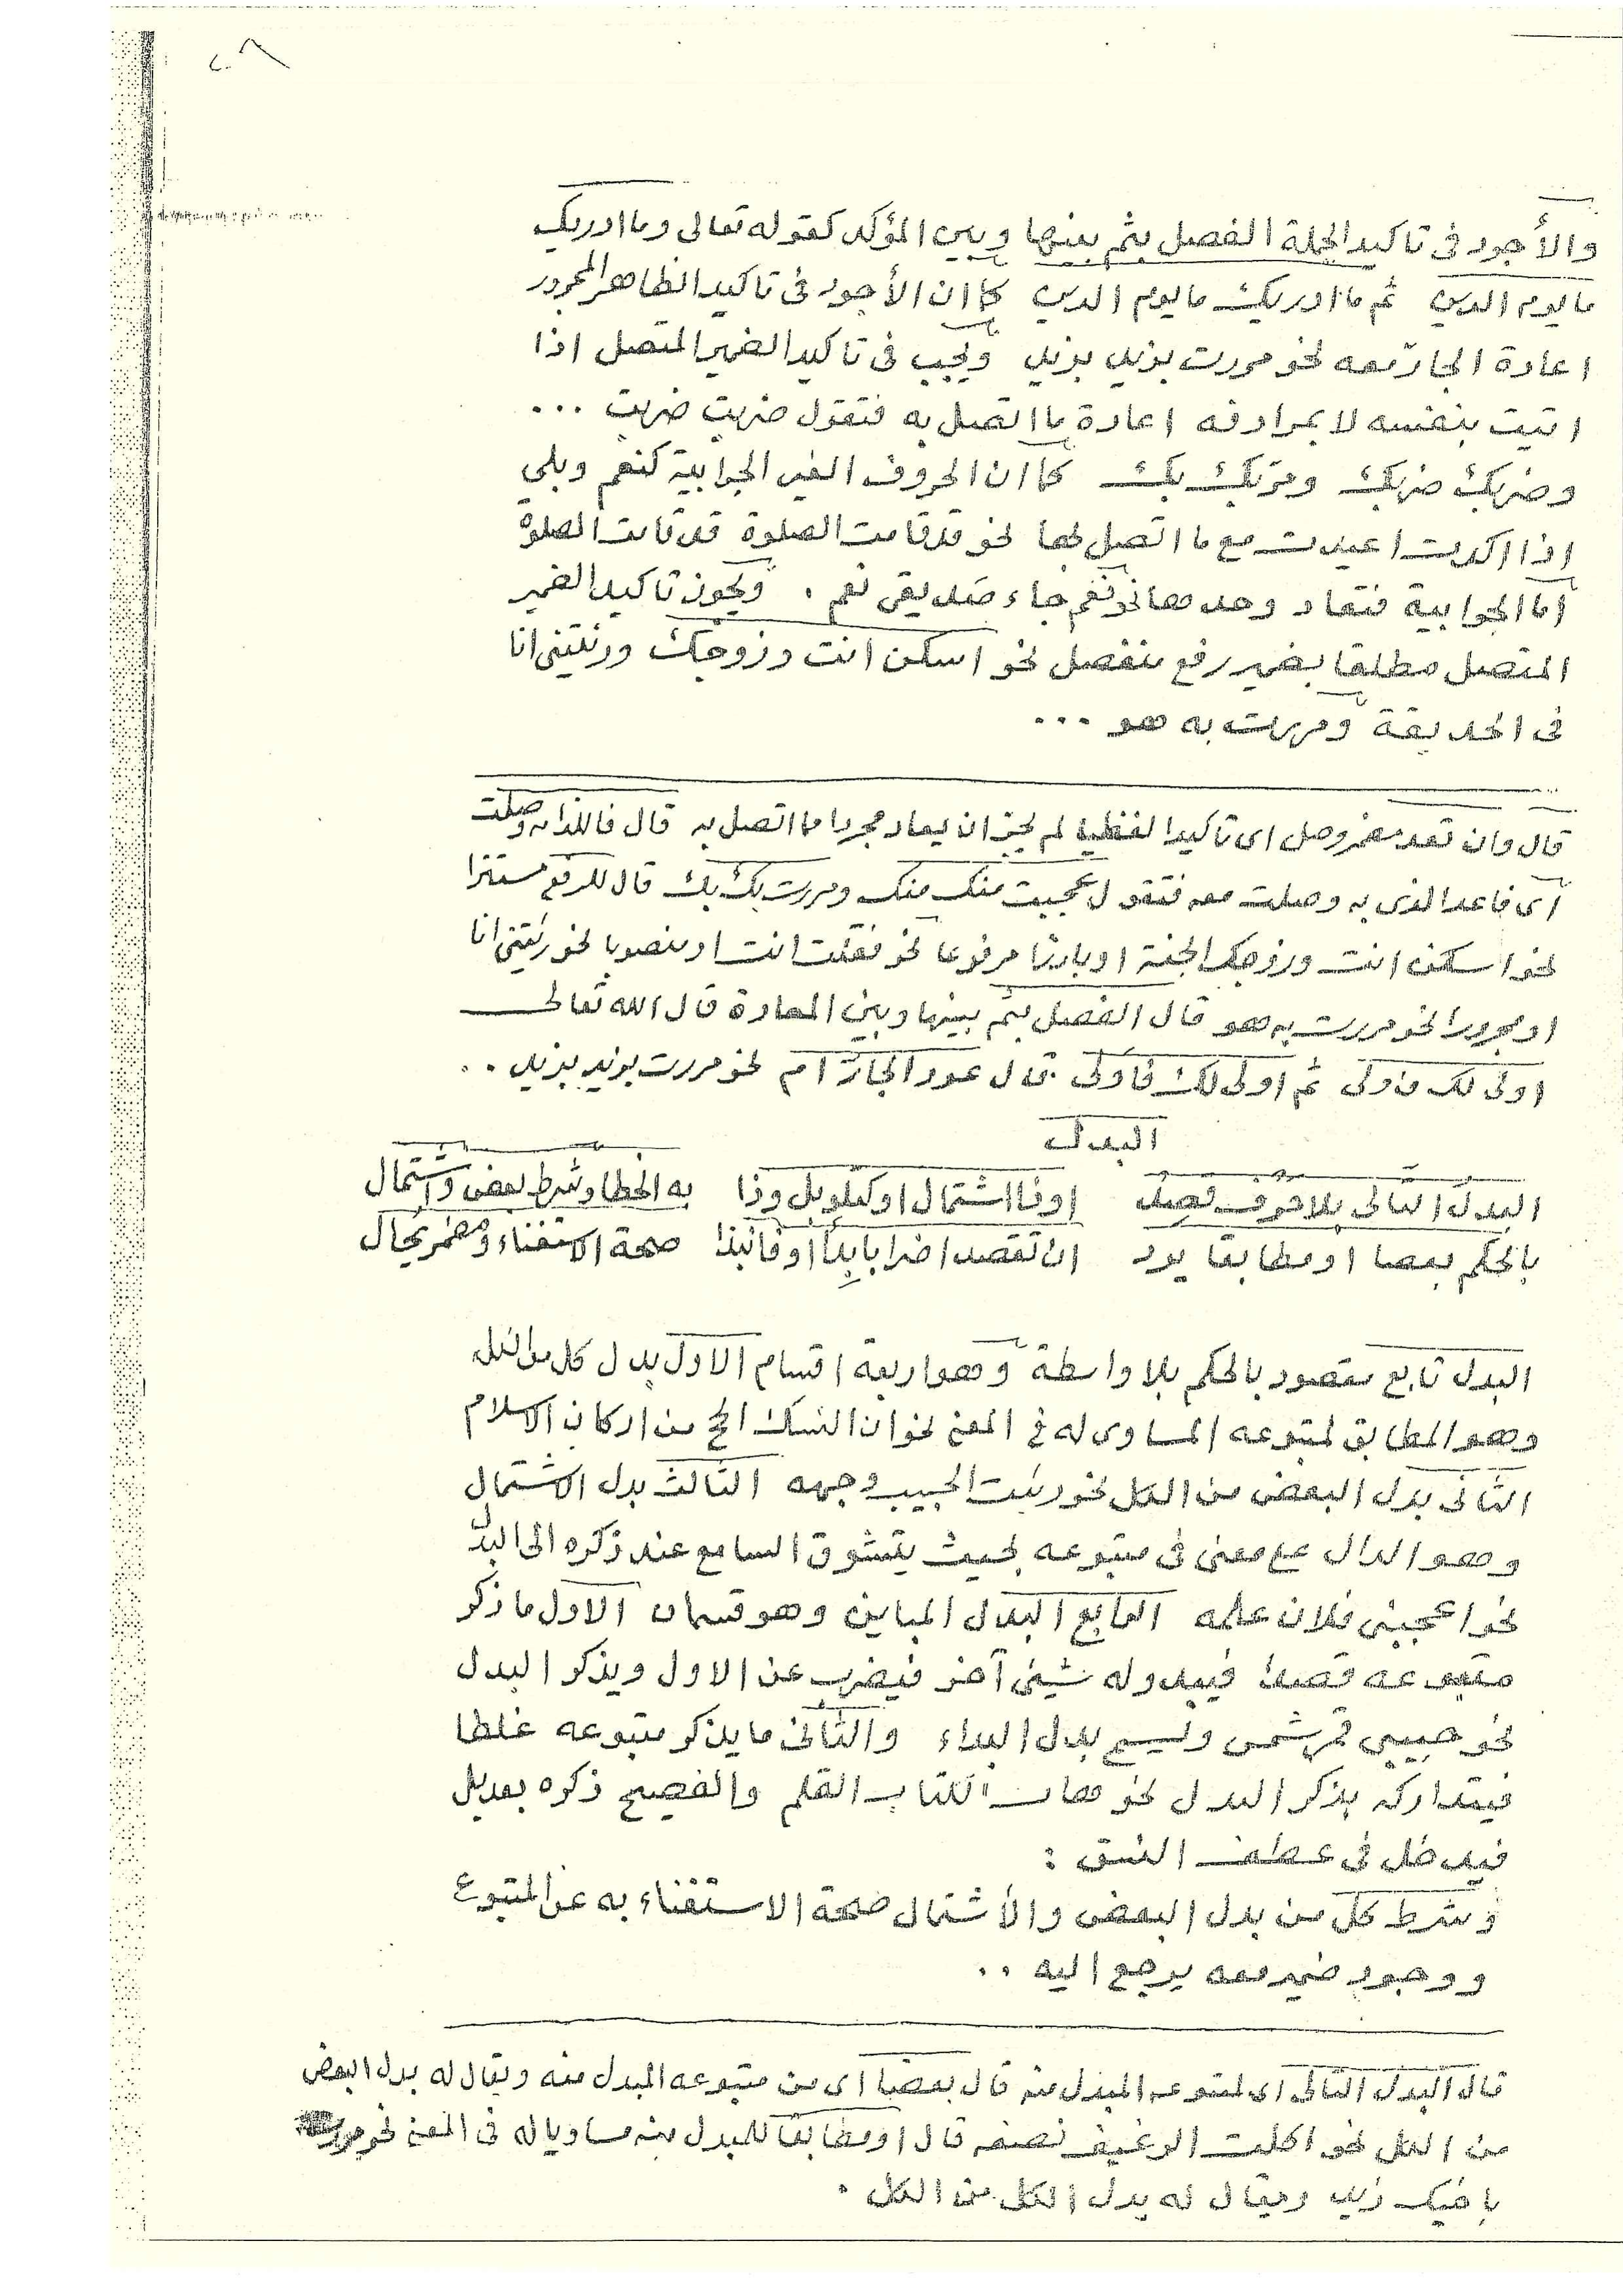 ٢٠٨
والأجود فى تاكيد الجملة الفصل بثم بينها وبين المؤكد كقوله تعالى وما ادريك
ما يوم الدين ثم ما ادريك ما يوم الدين كما ان الأجود فى تاكيد الظاهر المجرور
اعادة الجار معه نحو مررت بزيد بزيد ويجب فى تاكيد الضمير المتصل اذا
اتيت بنفسه لا بمرادفه اعادة ما اتصل به فتقول ضربت ضربت ...
وضربك ضربك ومر بك بك كما ان الحروف الغير الجوابية كنعم وبلى
اذا اكدت اعيدت مع ما اتصل بها نحو قد قامت الصلوة قد قامت الصلوة
أما الجوابية فتعاد وحدها نحو نعم جاء صديقى نعم . ويجوز تاكيد الضمير
المتصل مطلقا بضمير رفع منفصل نحو اسكن انت وزوجك ورئيتنى انا
فى الحديقة ومررت به هو ...
قال وان تعد مضمر وصل اى تاكيدا لفظيا لم يجز ان يعاد مجردا مما اتصل به قال فاللذ به وصلت
أى فاعد الذى به وصلت معه فتقول عجبت منك منك ومررت بك بك قال للرفع مستترا
نحو اسكن انت وزوجك الجنة او بارزا مرفوعا نحو فعلت انت او منصوبا نحو رئيتنى انا
او مجرورا نحو مررت به هو قال الفصل بثم بينها وبين المعادة قال الله تعالى
اولى لك فاولى ثم اولى لك فاولى قال عود الجار ام نحو مررت بزيد بزيد ..
البدل
البدل التالى بلا حرف قصد اوذا اشتمال او كتلو بل وذا به الخطا وشرط بعض واشتمال
بالحكم بعضا او مطابقا يرد ان تقصد اضرابا بدا او فانبذا صحة الاستغناء ومضمر بحال
البدل تابع مقصود بالحكم بلا واسطة وهو اربعة اقسام الاول بدل كل من الكل
وهو المطابق لمتبوعه المساوى له فى المعنى نحو ان النسك الحج من اركان الاسلام
الثانى بدل البعض من الكل نحو رئيت الحبيب وجهه الثالث بدل الاشتمال
وهو الدال على معنى فى متبوعه بحيث يتشوق السامع عند ذكره الى البدل
نحو اعجبنى فلان علمه الرابع البدل المباين وهو قسمان الاول ما ذكر
متبوعه قصدا فيبدو له شيئ آخر فيضرب عن الاول ويذكر البدل
نحو حبيبى قمر شمس ويسمى بدل البداء والثانى ما يذكر متبوعه غلطا
فيتداركه بذكر البدل نحو هات الكتاب القلم والفصيح ذكره بعد بل
فيدخل فى عطف النسق :
وشرط كل من بدل البعض والأشتمال صحة الاستغناء به عن المتبوع
ووجود ضمير معه يرجع اليه ..
قال البدل التالى اى لمتبوعه المبدل منه قال بعضا اى من متبوعه المبدل منه ويقال له بدل البعض
من الكل نحو اكلت الرغيف نصفه قال او مطابقا للمبدل منه مساويا له فى المعنى نحو مررت
باخيك زيد ويقال له بدل الكل من الكل .